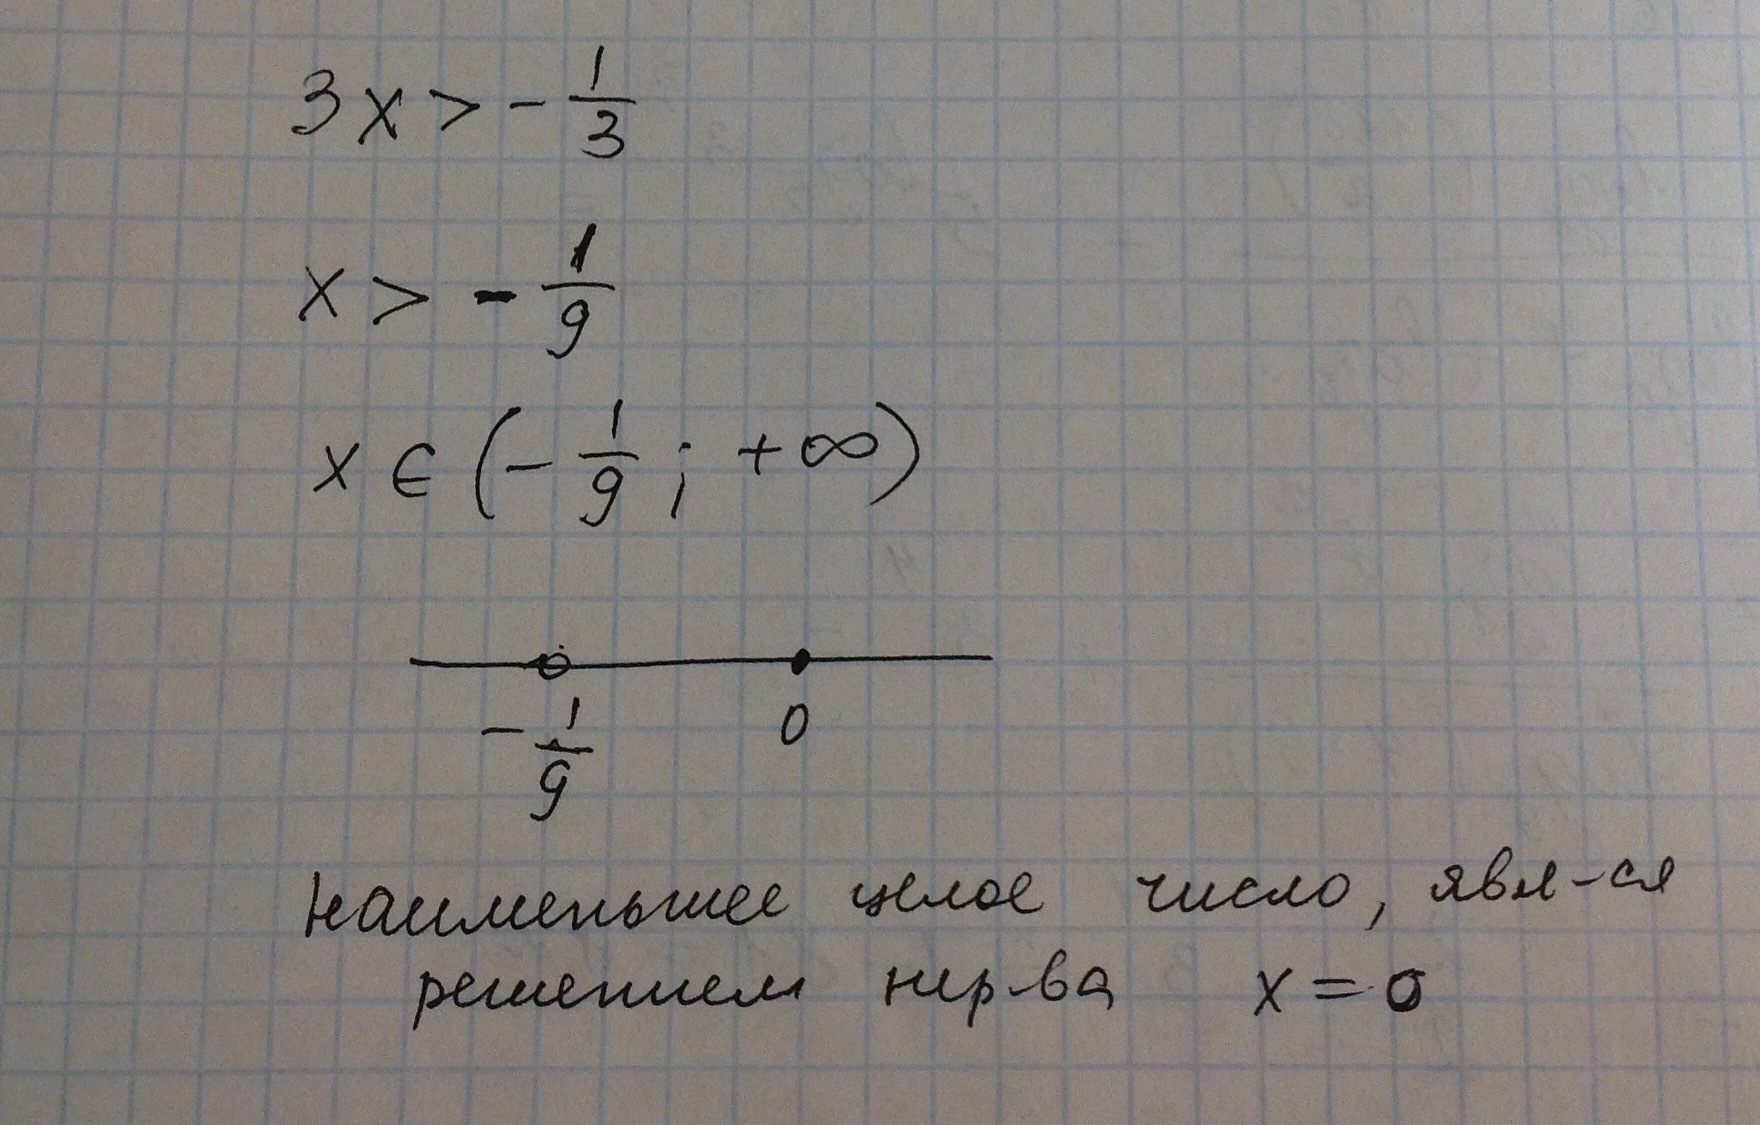 3x > - 1/3
x > - 1/9
x ∈ (- 1/9 ; + ∞)
- 1/9 0
наименьшее целое число, явл-ся
решением нер-ва x = 0